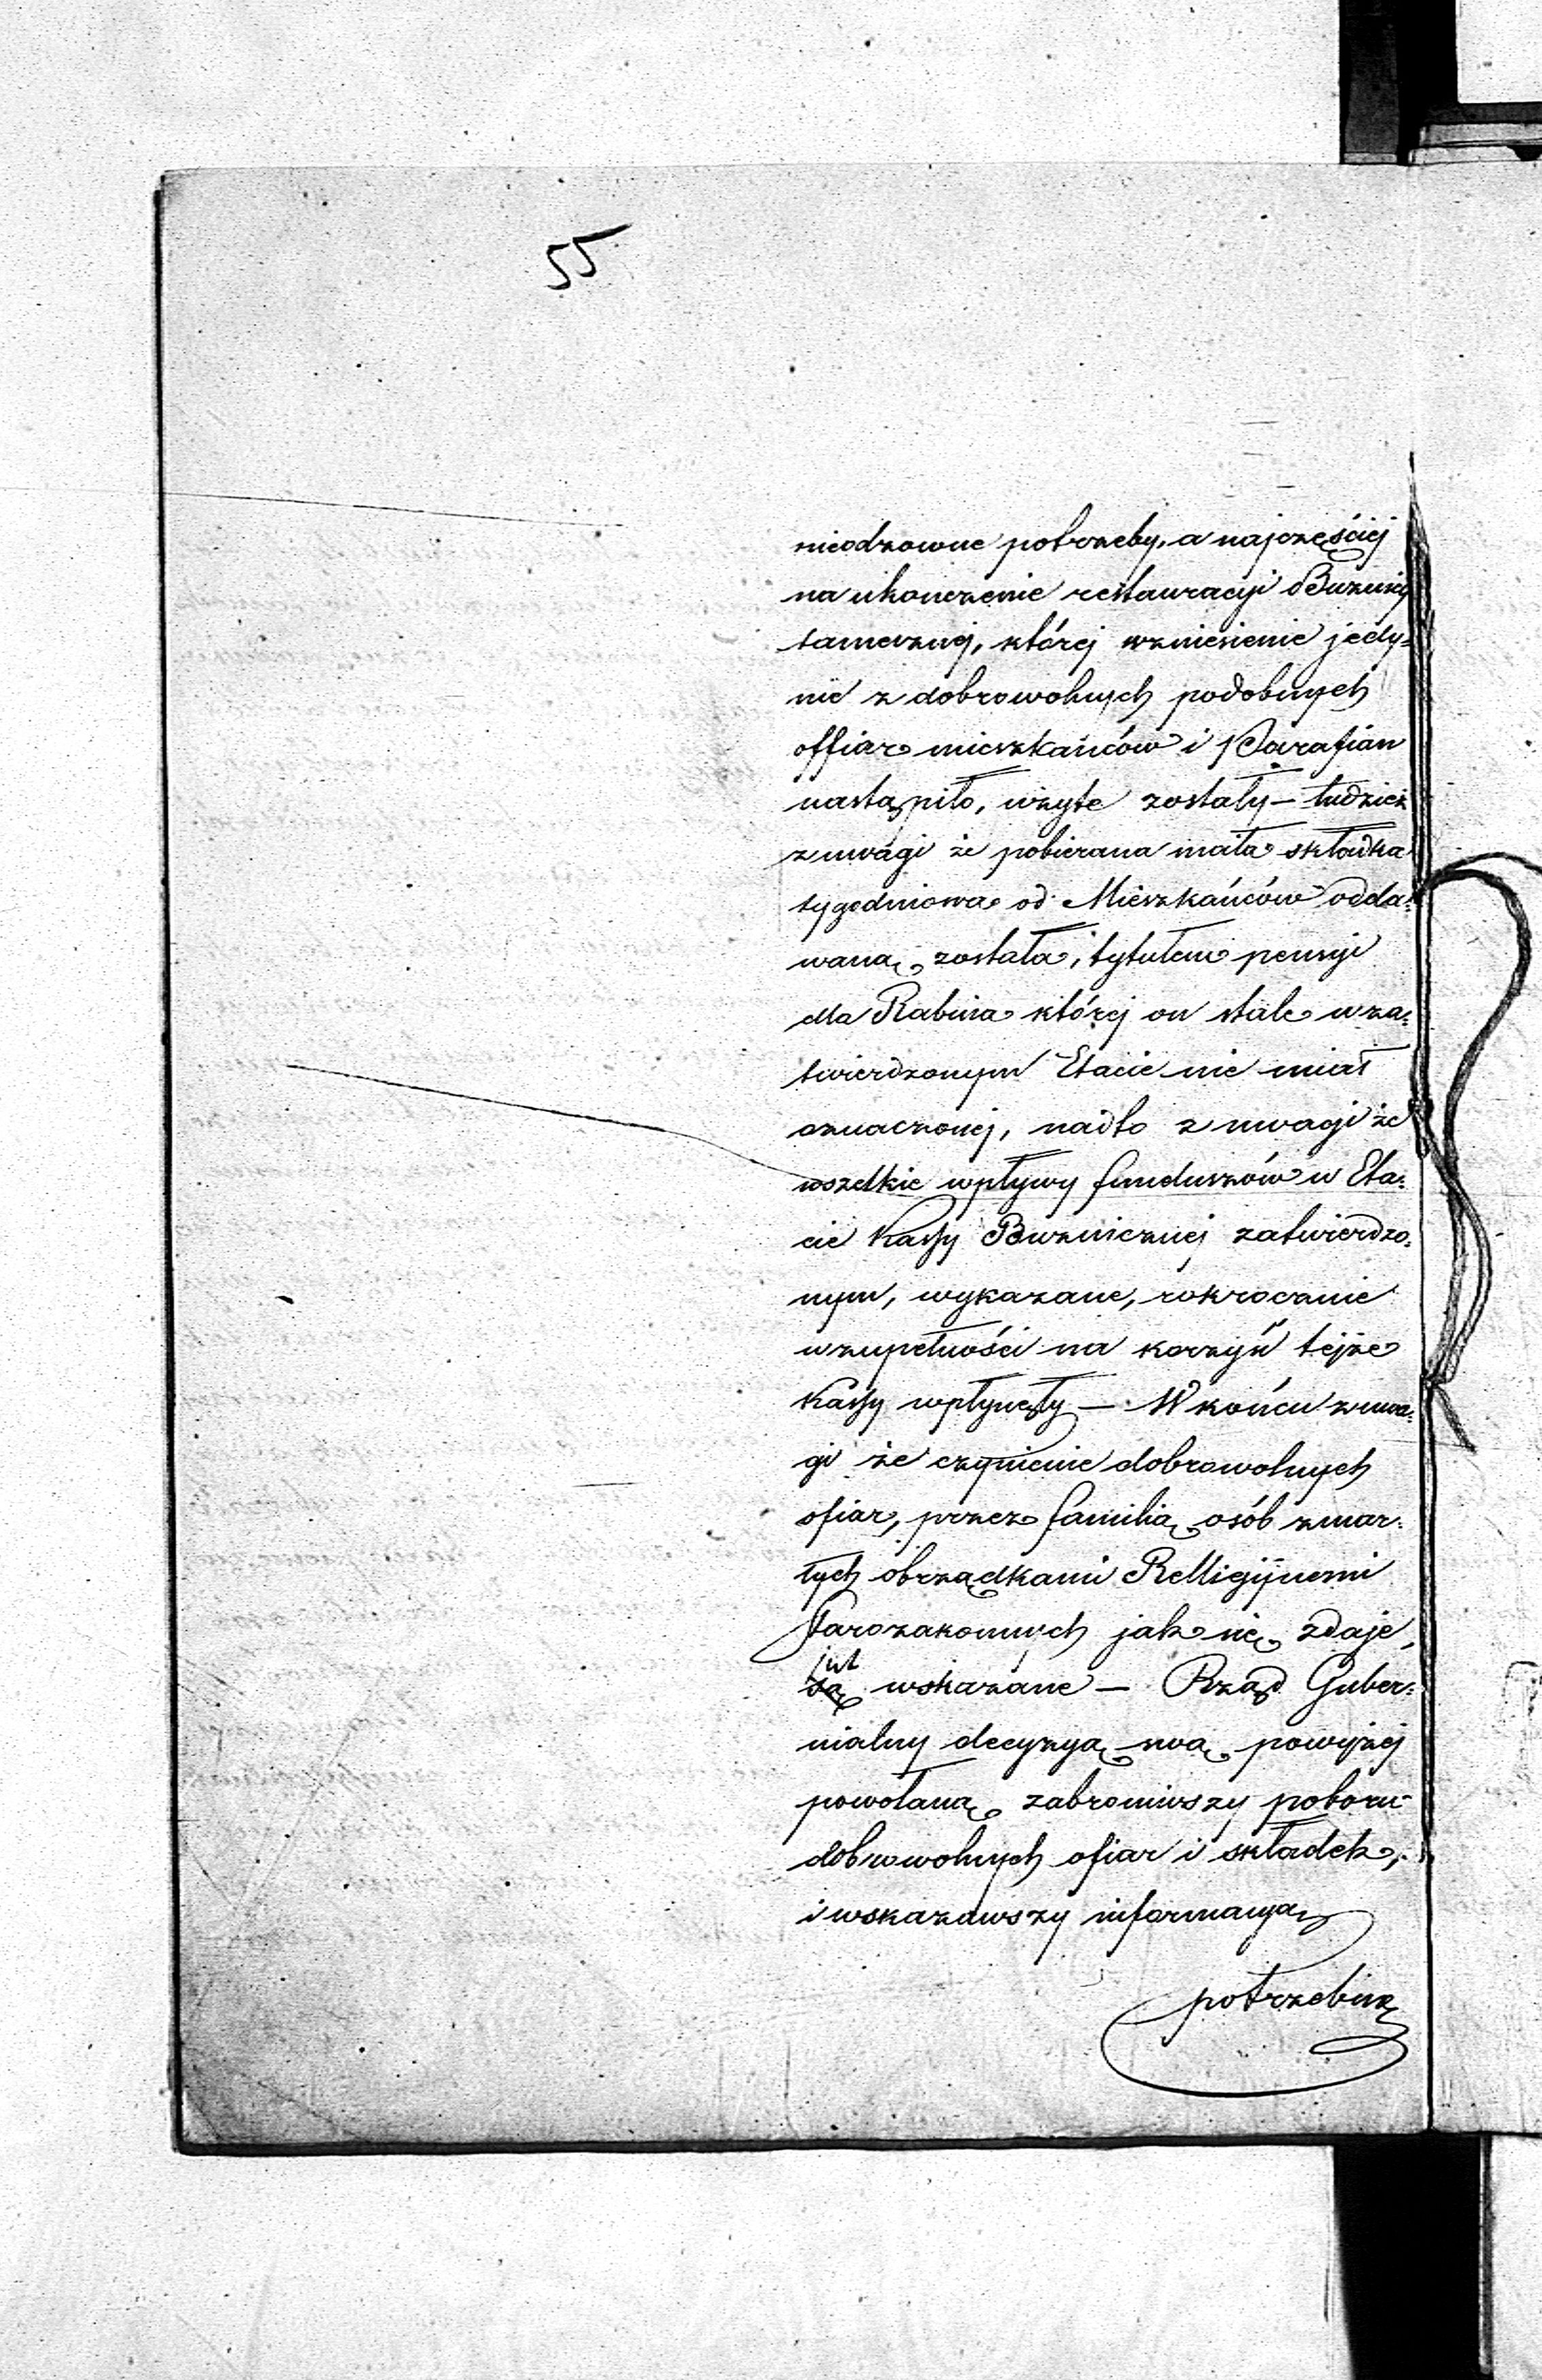 55
nieodzowne potrzeby, a najczęściej
na ukonczenie restauracyi Buznicy
tamecznej, której wzniesienie jedy=
nie z dobrowolnych podobnych
offiar mieszkańców i Parafian
nastąpiło, użyte zostały – tudzież
z uwagi że pobierana mała składka
tygodniowa od Mieszkańców odda=
waną została, tytułem pensyi
dla Rabina której on stale w za=
twierdzonym Etacie nie miał
oznaczonej, nadto z uwagi że
wszelkie wpływy funduszów w Eta=
cie Kassy Buznicznej zatwierdzo=
nym, wykazane, rokrocznie
w zupełności na korzyść tejże
Kassy wpłynęły – W końcu z uwa=
gi że czynienie dobrowolnych
ofiar, przez familią osób zmar=
łych obrządkami Relligijnemi
Starozakonnych jak się zdaje,
jest
są wskazane – Rząd Guber=
nialny decyzyą swą powyżej
powołaną zabroniwszy poboru
dobrowolnych ofiar i składek,
i wskazawszy informacyą
potrzebną